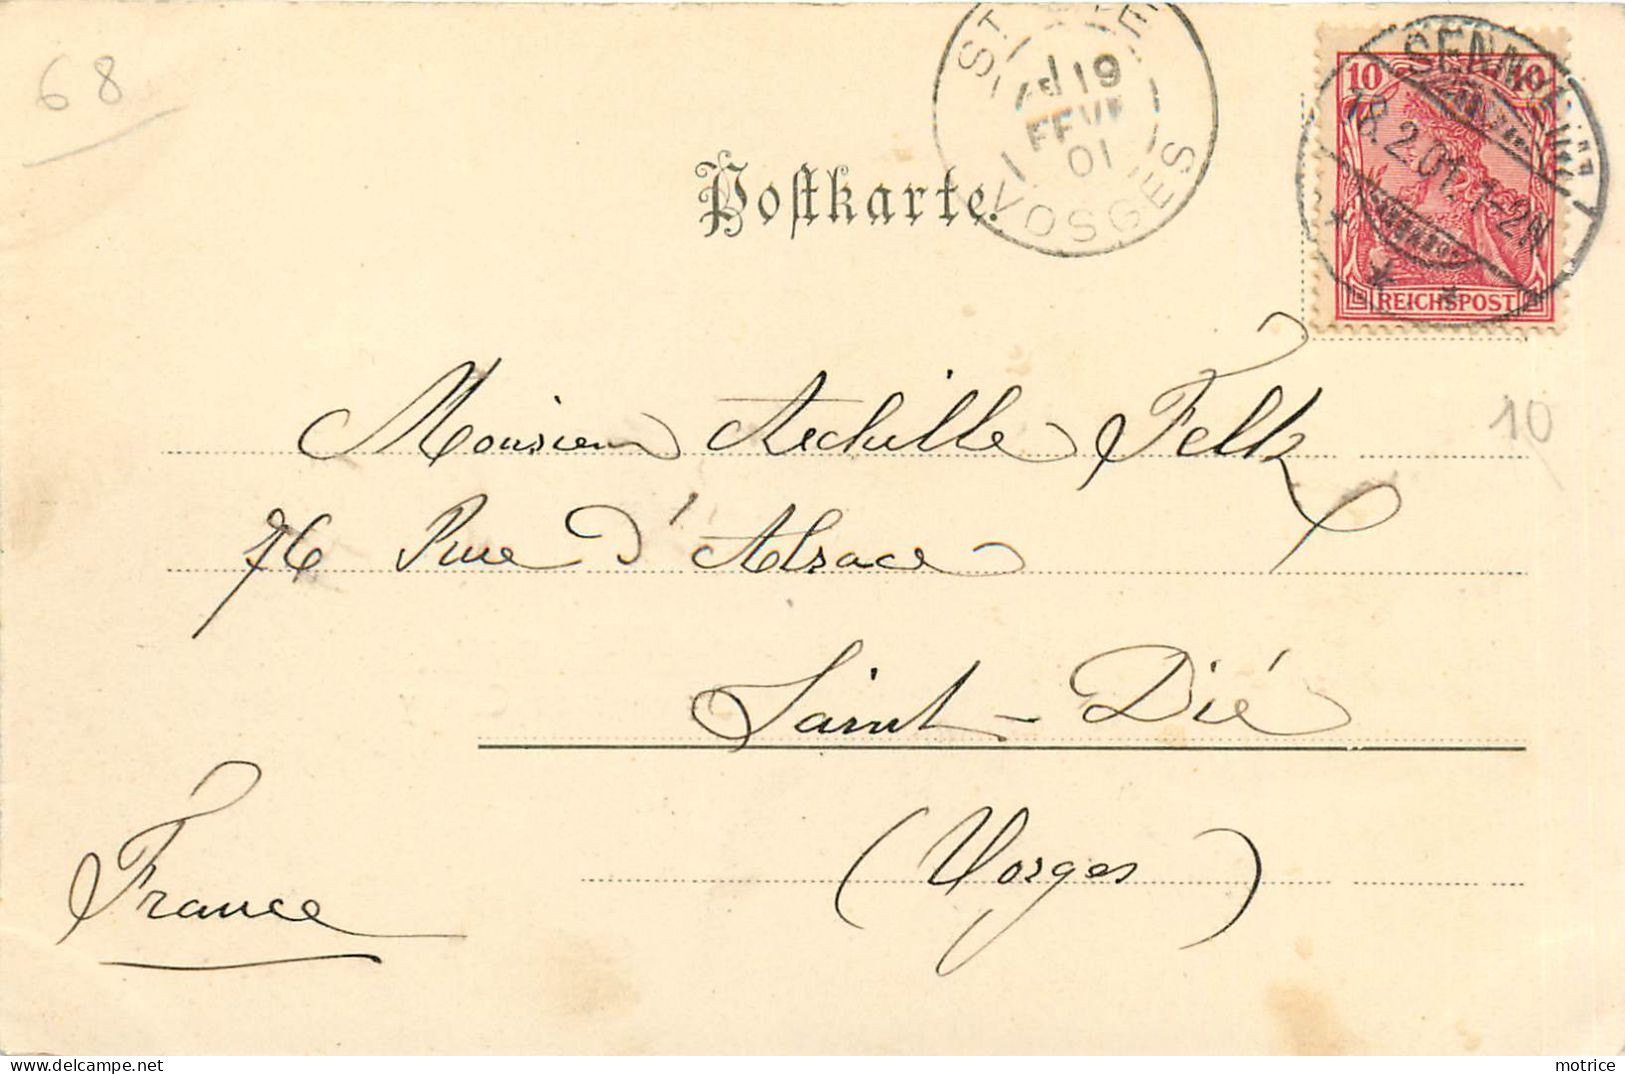 68
Postkarte.
ST DIÉ
19
FEVR
01
VOSGES
18.2.01. 1-2N
10 10
REICHSPOST
10
Monsieur Achille Feltz
76 Rue d'Alsace
Saint-Dié
(Vosges)
France
motrice